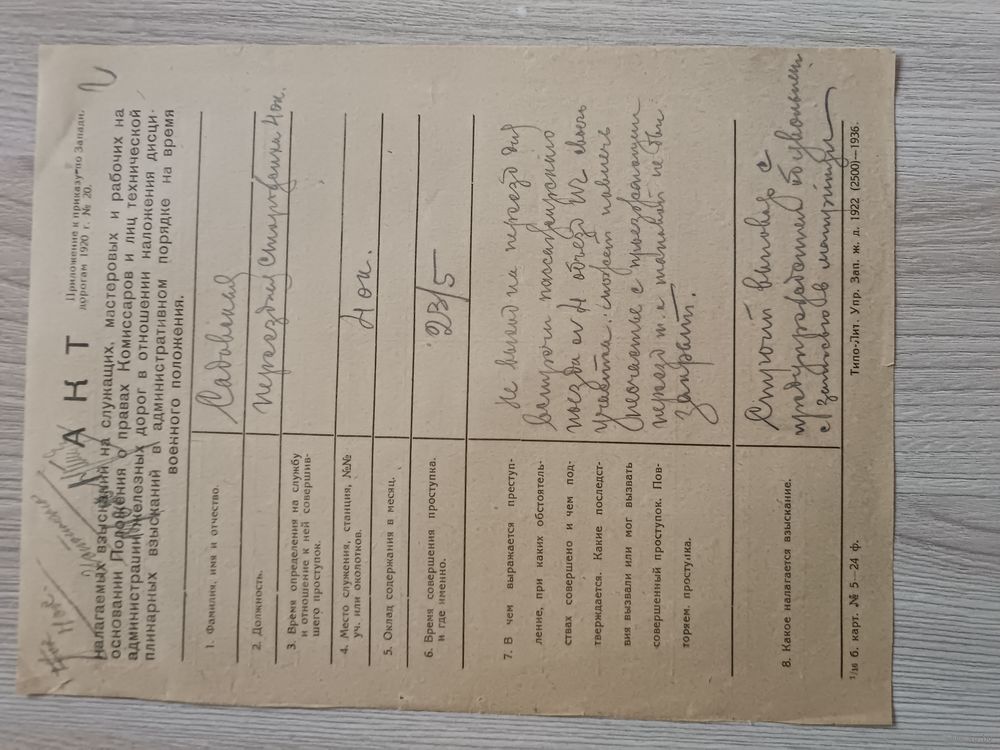 Приложение к приказу по Западн.
дорогам 1920 г. № 20.
АКТ
налагаемых взысканий на служащих, мастеровых и рабочих на
основании Положения о правах Комиссаров и лиц технической
администрации железных дорог в отношении наложения дисци-
плинарных взысканий в административном порядке на время
военного положения.
1. Фамилия, имя и отчество.
Садовская
2. Должность.
переездн
3. Время определения на службу
и отношение к ней совершив-
шего проступок.
4. Место служения, станция, №№
уч. или околотков.
4 ок.
5. Оклад содержания в месяц.
6. Время совершения проступка.
и где именно.
23/5
7. В чем выражается преступ-
ление, при каких обстоятель-
ствах совершено и чем под-
тверждается. Какие последст-
вия вызвали или мог вызвать
совершенный проступок. Пов-
торяем. проступка.
Не выход на переезд для
встречи пассажирского
поезда
участка может повлечь
несчастье с проезжающими
переезд т.к таковой не был
закрыт.
8. Какое налагается взыскание.
Строгий выговор с
предупреждением об увольнен
с записью в
1/16 б. карт. № 5—24 ф.
Типо-Лит. Упр. Зап. ж. д. 1922 (2500)—1936.